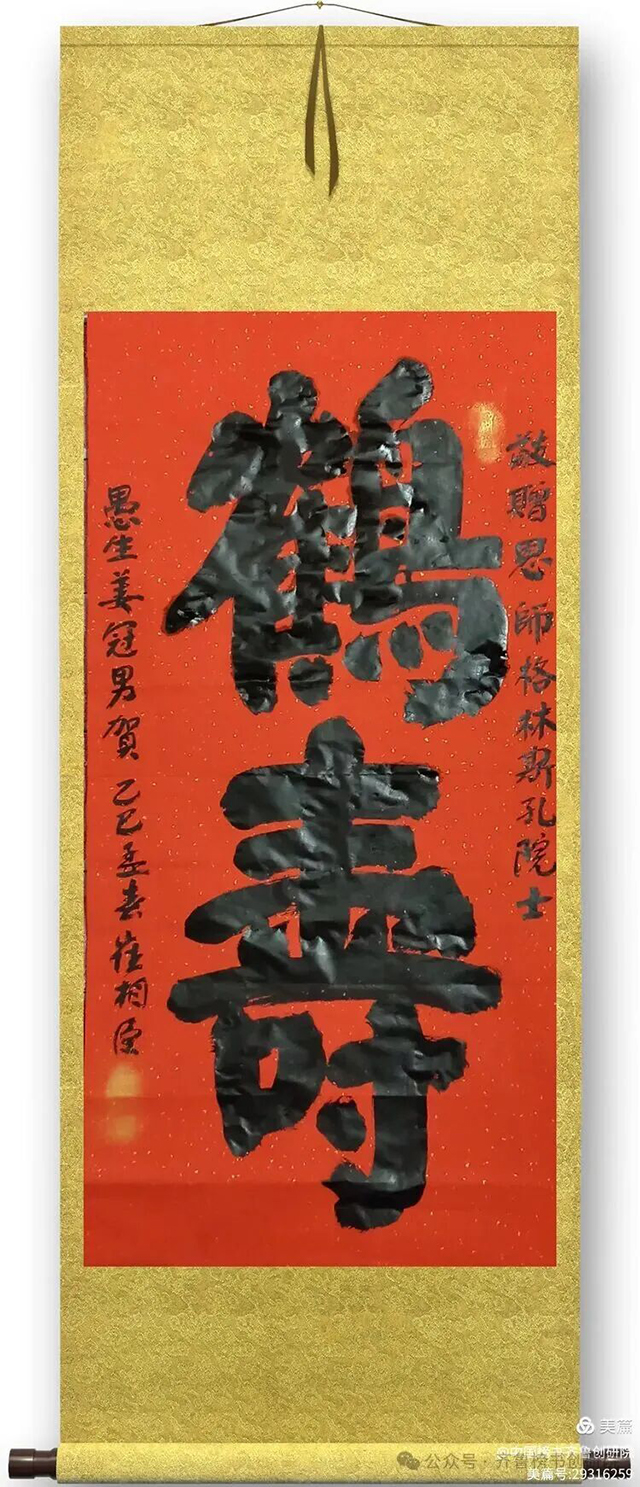 敬贈恩師格林斯孔院士
鶴壽
愚生姜冠男贺 乙巳孟春 崔相臣
美篇
公众号·齐鲁榜书创
美篇号:29316259